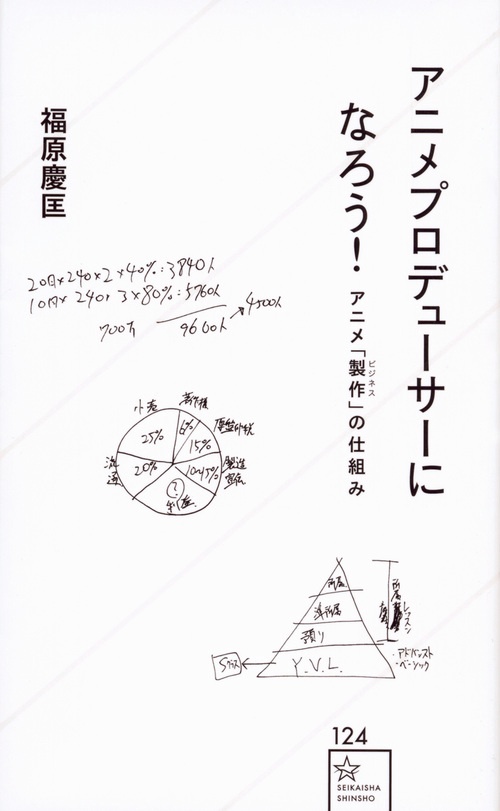 アニメプロデューサーに
なろう!
アニメ「製作」の仕組み
ビジネス
福原慶匡
20日×240×2×40%:3840人
10日×240×3×80%:5760人
700万 9600人
4500人
小売
著作権
25%
6%
15%
流通
20%
10~15%
製造
宣伝
?
所属
準所属
預り
Y.V.L.
レッスン
・アドバンスト
・ベーシック
124
SEIKAISHA
SHINSHO